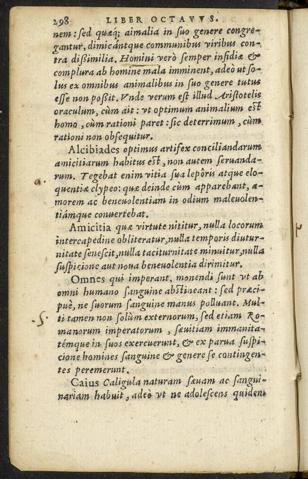 298 LIBER OCTAVVS.
nem: sed quæq; aimalia in suo genere congre-
gantur, dimicántque communibus viribus con-
tra dißimilia. Homini verò semper infidiæ &
complura ab homine mala imminent, adeò ut so-
lus ex omnibus animalibus in suo genere tutus
esse non poßit. Vnde verum est illud Aristotelis
oraculum, cùm ait: vt optimum animalium est
homo, cùm rationi paret: sic deterrimum, cùm
rationi non obsequitur.
Alcibiades optimus artifex conciliandarum
amicitiarum habitus est, non autem seruanda-
rum. Tegebat enim vitia sua lepôris atque elo-
quentiæ clypeo: quæ deinde cùm apparebant, a-
morem ac beneuolentiam in odium maleuolen-
tiámque conuertebat.
Amicitia quæ virtute nititur, nulla locorum
intercapedine obliteratur, nulla temporis diutur-
nitate senescit, nulla taciturnitate minuitur, nulla
suspicione aut noua beneuolentia dirimitur.
Omnes qui imperant, monendi sunt vt ab
omni humano sanguine abstineant: sed præci-
puè, ne suorum sanguine manus polluant. Mul-
ti tamen non solùm externorum, sed etiam Ro-
manorum imperatorum, sæuitiam immanita-
témque in suos exercuerunt, & ex parua suspi-
cione homines sanguine & genere se contingen-
tes peremerunt.
Caius Caligula naturam sæuam ac sangui-
nariam habuit, adeò vt ne adolescens quidem